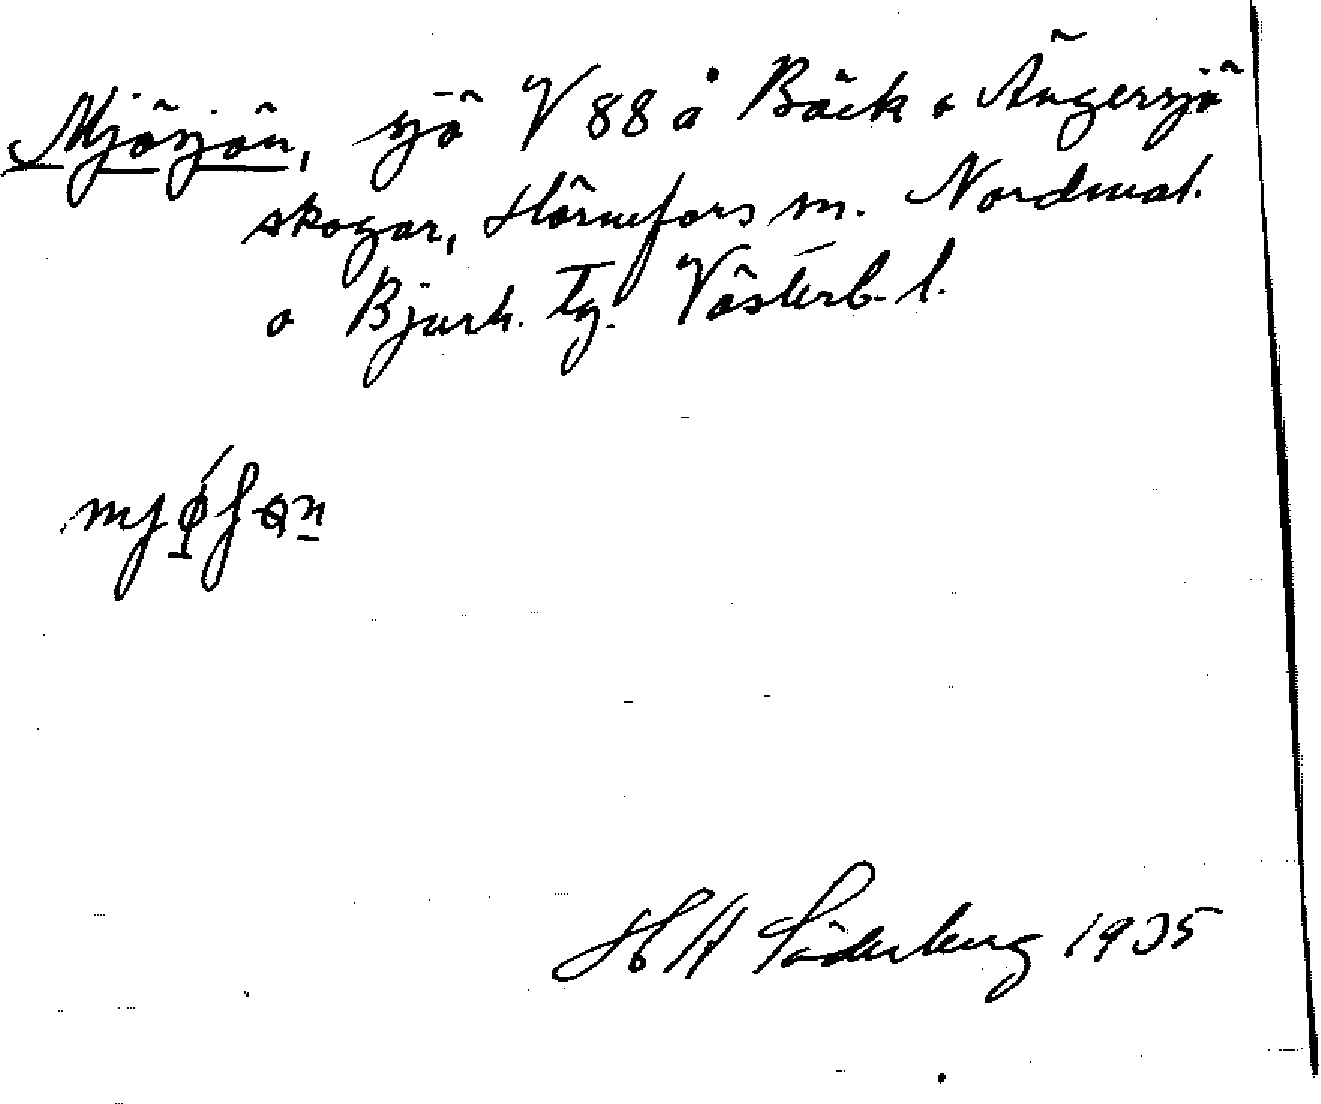 Mjösjön, sjö V 88 å Bäck o Ängersjö
skogar, Hörnefors sn. Nordmal.
o Bjurh. tg. Västerb. l.
H A Söderberg 1935